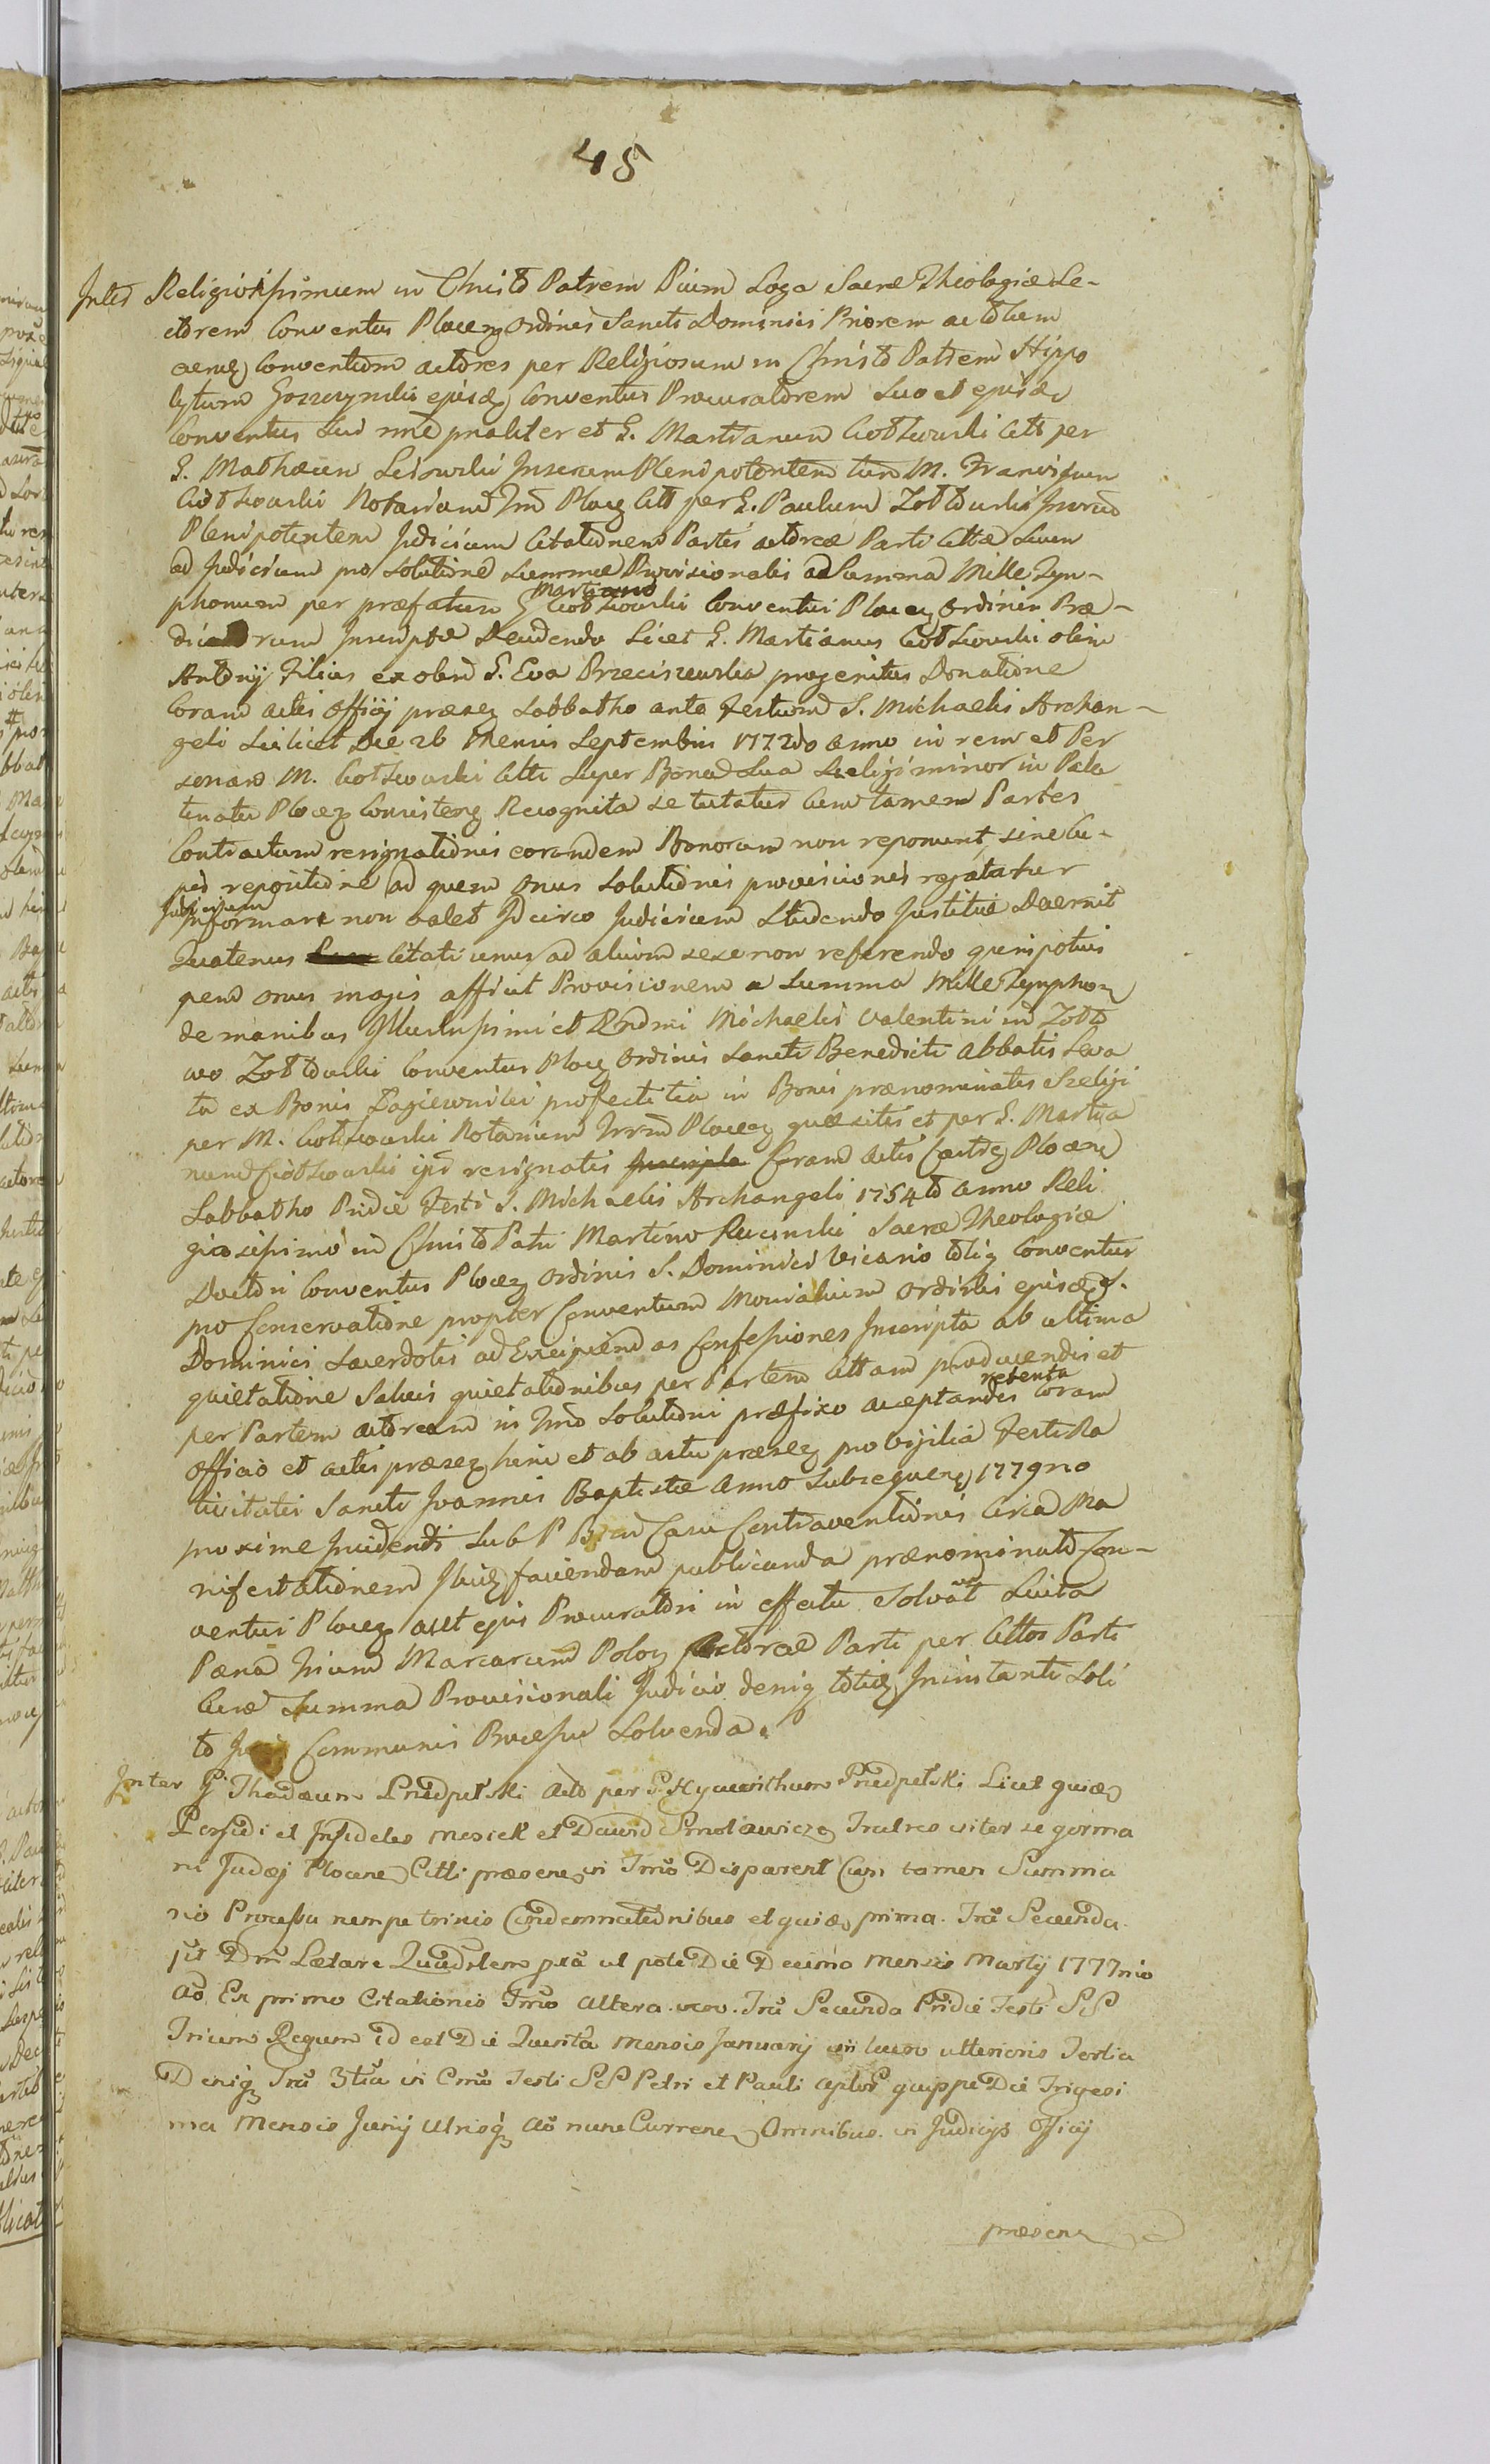 45
Inter Religiosissimum in Christo Patrem Pium Loga Sacræ Theologiæ Le-
ctorem Conventus Plocen Ordinis Sancti Dominici Priorem ac totum
eumq Conventum actores per Religiosum in Christo Patrem Hippo
lytum ejusq Conventus Procuratorem suo et ejusd
Conventus sui et G. Martianum Ciołkowski Citt per
G. Mathæum Lisowski Juratum Plenipotentem tum M. Franciscum
Ciołkowski Notarium Plocen Citt per G. Paulum Zołtowski Juratum
Plenipotentem Judicium Citationem Partis actoreæ Parti Cittæ suum
ad Judicium pro solutione summæ Provisionalis a summa Mille Tym-
phonum per præfatum G Martianum Ciołkowski Conventui Plocen Ordinis Præ-
dicatorum Inscripta Licet G. Martianus Ciołkowski olim
Antonij Filius ex olim G. Eva Przeciszewska progenitus Donatione
Coram actis Officij præsen Sabbatho ante Festum S. Michaelis Archan-
geli scilicet Die 26 Mensis Septembris 1772do Anno in rem et Per
sonam M. Ciołkowski Citti super Bona sua Szeligi minor in Pala
tinatu Plocen Consisten Recognita se tutatur Cum tamen Partes
Contractum resignationis eorundem Bonorum non reponunt, sine Cu-
jus repositione ad quem onus solutionis provisionis
Judicium Informari non valet Idcirco Judicium Studendo Justitiæ Decernit
Quatenus Citati unus ad alium sese non referendo quempotius
penes onus magis afficit Provisionem a Summa Mille Tymphon
de manibus Illustrissimi et Rndmi Michaelis Valentini in Zołto
wo Zołtowski Conventus Plocen Ordinis Sancti Benedicti Abbatis leva
ta ex Bonis Łagiewniki profectitia in Bonis prænominatis Szeligi
per M. Ciołkowski Notarium Plocen quæsitis et per G. Martia
num Ciołkowski ipsi resignatis Coram Actis Castren Plocen
Sabbatho Pridie Festi S. Michaelis Archangeli 1754to Anno Reli
giosissimo in Christo Patri Martino Rucinski Sacræ Theologiæ
Doctori Conventus Plocen Ordinis S. Dominici Vicario totiq Conventui
pro Conservatione propter Conventum Monialium Ordinis ejusd S.
Dominici Sacerdotis ad Excipiendas Confessiones Inscripta ab ultima
quietatione Salvis quietationibus per Partem Cittam producendis et
per Partem Actoream in Tmo Solutioni præfixo acceptandis retenta Coram
Officio et actis præsen hinc et ab actu præsen pro vigilia Festi Na
tivitatis Sancti Joannis Baptistæ Anno Subsequen 1779no
proxime Incidenti Sub P Casu Contraventionis Circa Ma
nifestationem faciendam publicanda prænominato Con-
ventui Plocen aut ejus Procuratori in effectu Solvat Luita
Pæna Trium Marcarum Polon Actoreæ Parti per Cittos Parti
Summa Provisionali Judicio deniq totieq Instanti Soli
to Juris Communis Processu Solvenda.
Inter G Thadæum Act per G. Hyacinthum Licet quia
Perfidi et Infideles Mosiek et Dawid Smolawicze Fratres inter se germa
ni Judæj Plocen Citti præsen in Tmo Disparent Cum tamen Summa
rio Processu nempe trinis Condemnationibus et quia prima. Fra Secunda
pst Dnm Lætare Qudrlem pxa ut pote Die Decima Mensis Martij 1777mo
Ao Ex primo Citationis Tmo altera vero. Fra Secunda Pridie Festi SS
Trium Regum id est Die Quinta Mensis Januarij in lucro ulterioris Tertia
Deniq Fra 3tia in Cmo Festi SS Petri et Pauli aplor quippe Die Trigesi
ma Mensis Junij Utrisq Ao nunc Curren Omnibus in Judicijs Officij
præsen